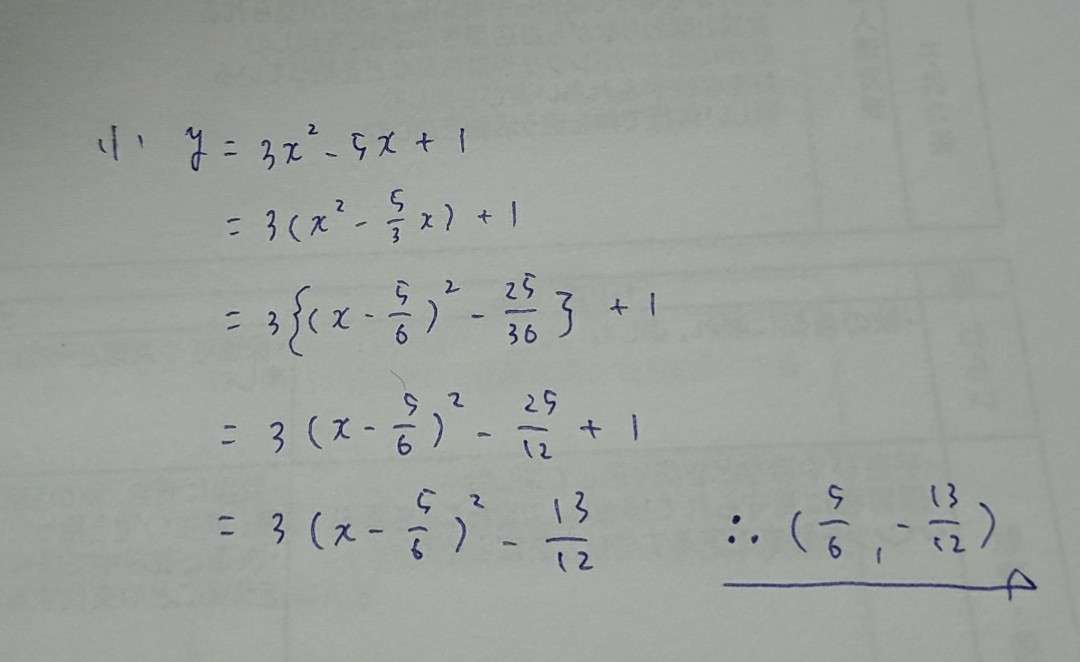 (1) y = 3x² - 5x + 1
= 3(x² - 5/3 x) + 1
= 3{(x - 5/6)² - 25/36} + 1
= 3(x - 5/6)² - 25/12 + 1
= 3(x - 5/6)² - 13/12 ∴ (5/6, -13/12)